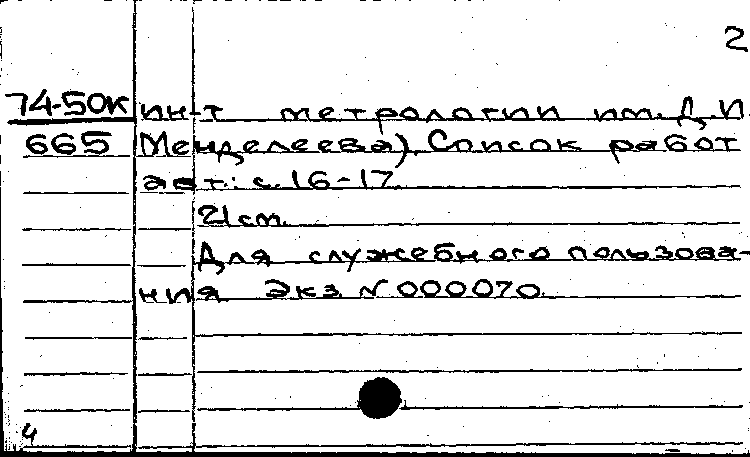 2
74-50К ин-т метрологии им. Д.И
665 Менделеева). Список работ
авт.: с. 16-17.
21 см.
Для служебного пользова-
ния Экз. N 000070.
4